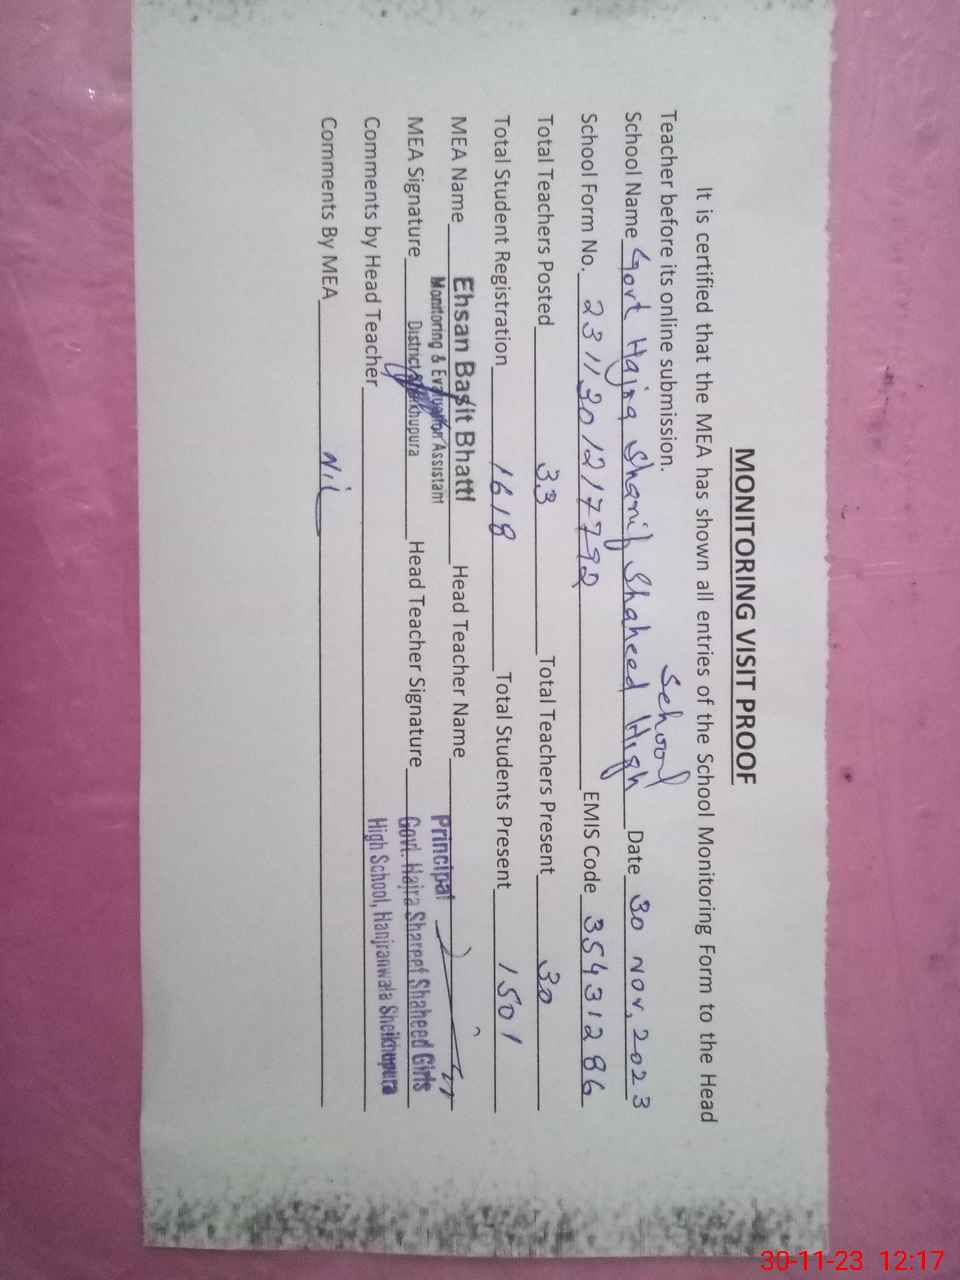 MONITORING VISIT PROOF
It is certified that the MEA has shown all entries of the School Monitoring Form to the Head
Teacher before its online submission.
School
School Name Govt Hajra Sharif Shaheed High Date 30 Nov, 2023
School Form No. 2311301217792 EMIS Code 35431286
Total Teachers Posted 33 Total Teachers Present 30
Total Student Registration 1618 Total Students Present 1501
MEA Name Ehsan Basit Bhatti Head Teacher Name Principal
Monitoring & Evaluation Assistant
MEA Signature District Sheikhupura Head Teacher Signature Govt. Hajra Shareef Shaheed Girls
Comments by Head Teacher High School, Hanjranwala Sheikhupura
Comments By MEA Nil
30-11-23 12:17